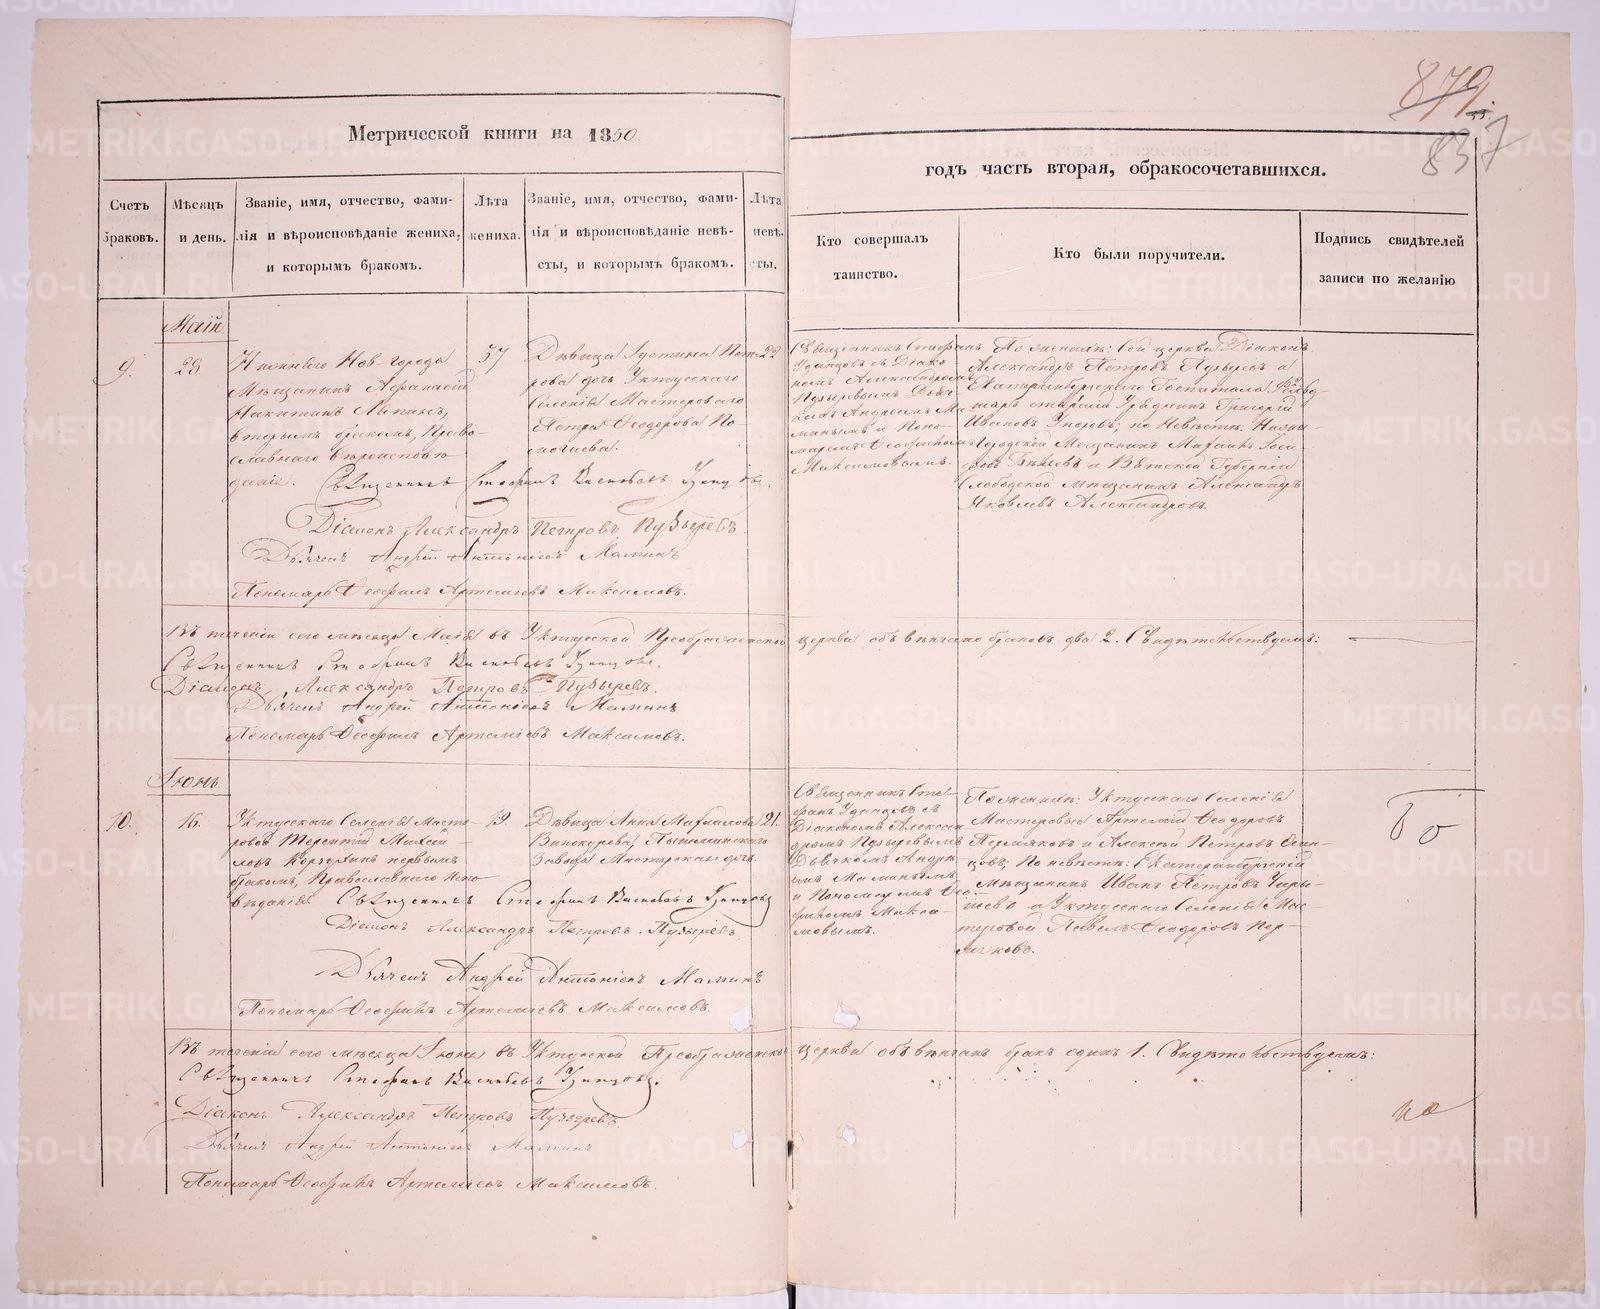 879
837
Метрической книги на 1850
годъ часть вторая, обракосочетавшихся.
Счетъ браковъ.
Мѣсяцъ и день.
Званіе, имя, отчество, фами-
лія и вѣроисповѣданіе жениха,
и которымъ бракомъ.
Лѣта
жениха.
Званіе, имя, отчество, фами-
лія и вѣроисповѣданіе невѣ-
сты, и которымъ бракомъ.
Лѣта
невѣ-
сты.
Кто совершалъ
таинство.
Кто были поручители.
Подпись свидѣтелей
записи по желанію
Маій
9.
23.
Нижняго Нов-города
Мѣщанинъ Афанасій
Никитинъ Липинъ,
вторымъ бракомъ, Право-
славнаго вѣроисповѣ-
данія.
37
Дѣвица Іустина Пет-
рова дочь Уктусскаго
Селенія Мастероваго
Петра Ѳеодорова По-
22
Священникъ Стефанъ
Удинцовъ съ Діако
номъ Александромъ
Пузыревымъ Дьяч-
комъ Андреемъ Ма
минымъ и Поно-
маремъ Ѳеофиломъ
Максимовымъ.
По женихѣ: Сей церкви Діаконъ
Александръ Петровъ Пузыревъ и
Екатеринбургскаго Госпиталя
старшій Урядникъ Григорій
Ивановъ; по Невѣстѣ:
Городской Мещанинъ
и Вятской Губерніи
Слободской мѣщанинъ Александръ
Яковлевъ Александровъ.
Священникъ Стефанъ Васильевъ Удинцовъ.
Діаконъ Александръ Петровъ Пузыревъ
Дьячекъ Андрей Антоніевъ Маминъ
Пономарь Ѳеофилъ Артеміевъ Максимовъ.
Въ теченіи сего мѣсяца Маія въ Уктусской Преображенской церкви обвѣнчано браковъ два 2. Свидѣтельствуемъ:
Священникъ Стефанъ Васильевъ Удинцовъ.
Діаконъ Александръ Петровъ Пузыревъ.
Дьячекъ Андрей Антоніевъ Маминъ
Пономарь Ѳеофилъ Артеміевъ Максимовъ.
Іюнь
10.
16.
Уктусскаго Селенія Масте-
ровой Терентій Михай-
ловъ Корзухинъ первымъ
бракомъ, Православнаго испо-
вѣданія.
19
Дѣвица Анна Михайлова
Винокурова, Пышминскаго
Завода Мастерская дочь.
21.
Священникъ Сте-
фанъ Удинцовъ съ
Діакономъ Алексан-
дромъ Пузыревымъ
Дьячкомъ Андре-
емъ Маминымъ
и Пономаремъ Ѳео-
филомъ Макси-
мовымъ.
По женихѣ: Уктусскаго Селенія
Мастеровые Артемій Ѳеодоровъ
Пермяковъ и Алексѣй Петровъ Осин-
цовъ; По невѣстѣ: Екатеринбургскій
Мѣщанинъ Иванъ Петровъ
и Уктусскаго Селенія Мас-
теровой Павелъ Ѳеодоровъ Пер-
мяковъ.
Священникъ Стефанъ Васильевъ Удинцовъ
Діаконъ Александръ Петровъ Пузыревъ
Дьячекъ Андрей Антоніевъ Маминъ
Пономарь Ѳеофилъ Артеміевъ Максимовъ.
Въ теченіи сего мѣсяца Іюня въ Уктусской Преображенской церкви обвѣнчанъ бракъ одинъ 1. Свидѣтельствуемъ:
Священникъ Стефанъ Васильевъ Удинцовъ.
Діаконъ Александръ Петровъ Пузыревъ.
Дьячекъ Андрей Антоніевъ Маминъ
Пономарь Ѳеофилъ Артеміевъ Максимовъ.
METRIKI.GASO-URAL.RU